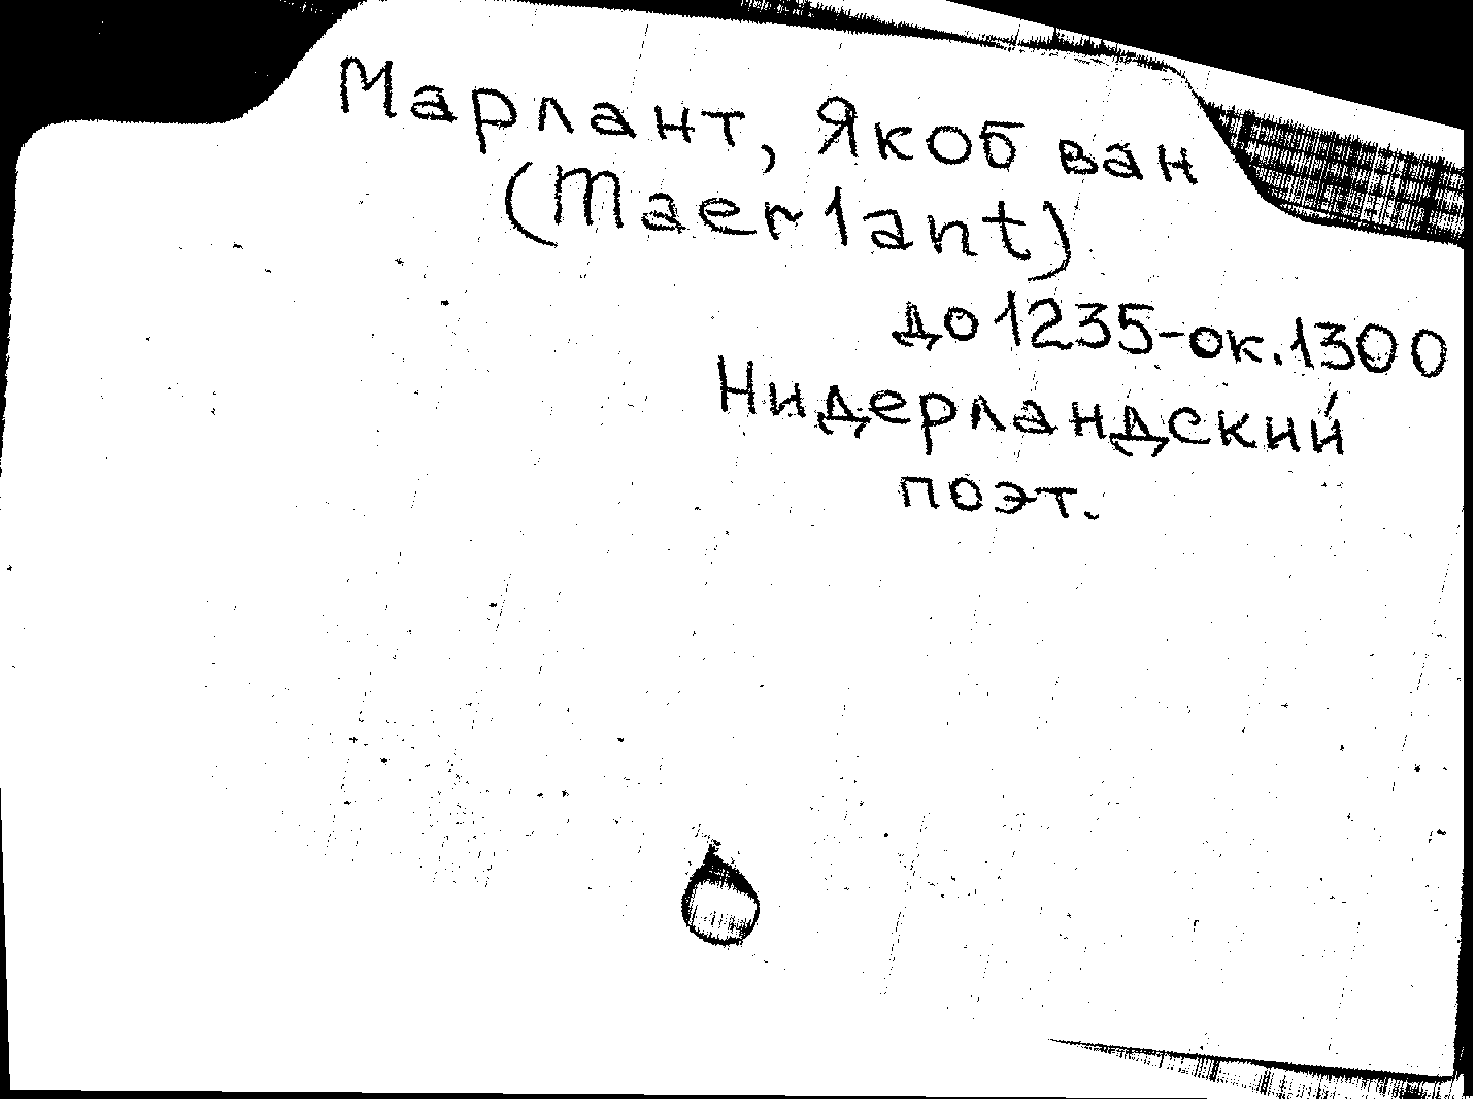 Марлант, Якоб ван
(Maerlant)
до 1235-ок. 1300
Нидерландский
поэт.